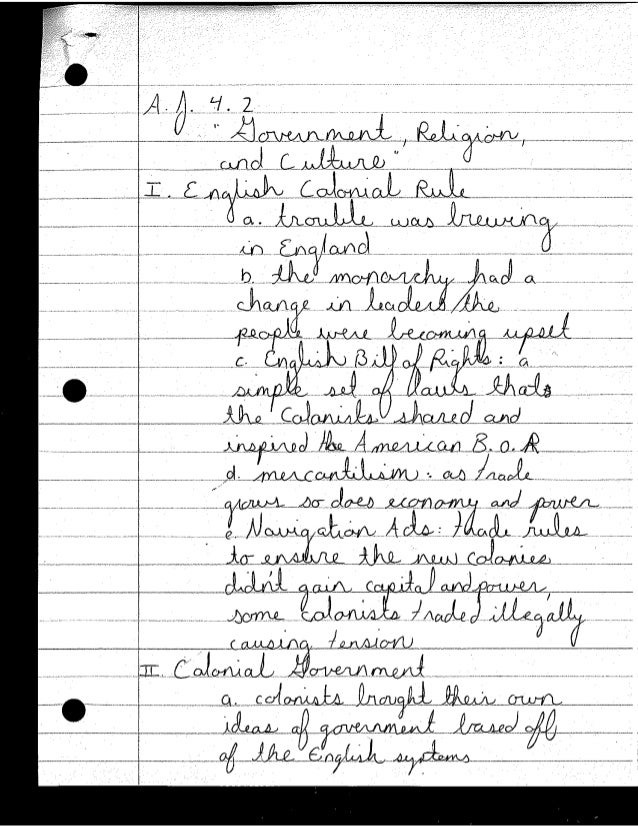 A.J. 4.2
"Government, Religion,
and Culture"
I. English Colonial Rule
a. trouble was brewing
in England
b. the monarchy had a
change in leaders/the
people were becoming upset
c. English Bill of Rights: a
simple set of laws thats
the Colonists shared and
inspired the American B.O.R
d. mercantilism: as trade
grows so does economy and power
e. Navigation Acts: trade rules
to ensure the new colonies
didn't gain capital and power,
some colonists traded illegally
causing tension
II. Colonial Government
a. colonists brought their own
ideas of government based off
of the English systems